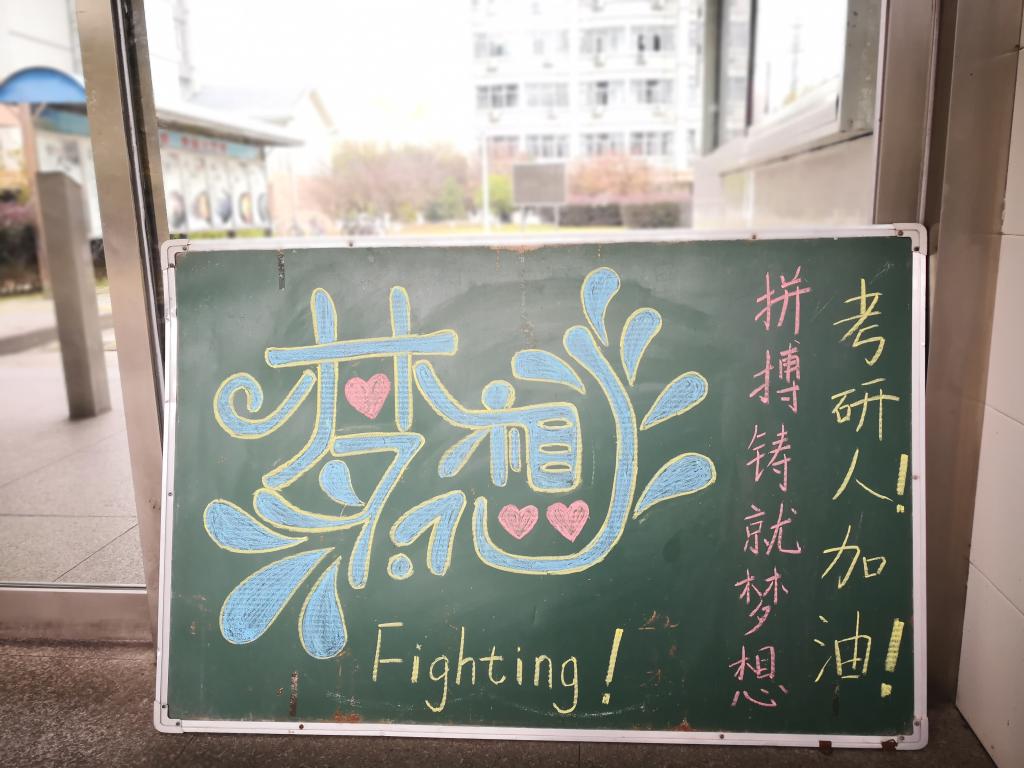 考研人!加油!
拼搏铸就梦想
梦想
Fighting!